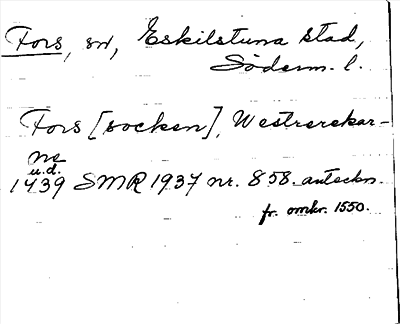 Fors, sn, Eskilstuna stad,
Söderm. l.
Fors [socken], Westrerekar-
ne
u.d.
1439 SMR 1937 nr. 858. anteckn.
fr. omkr. 1550.